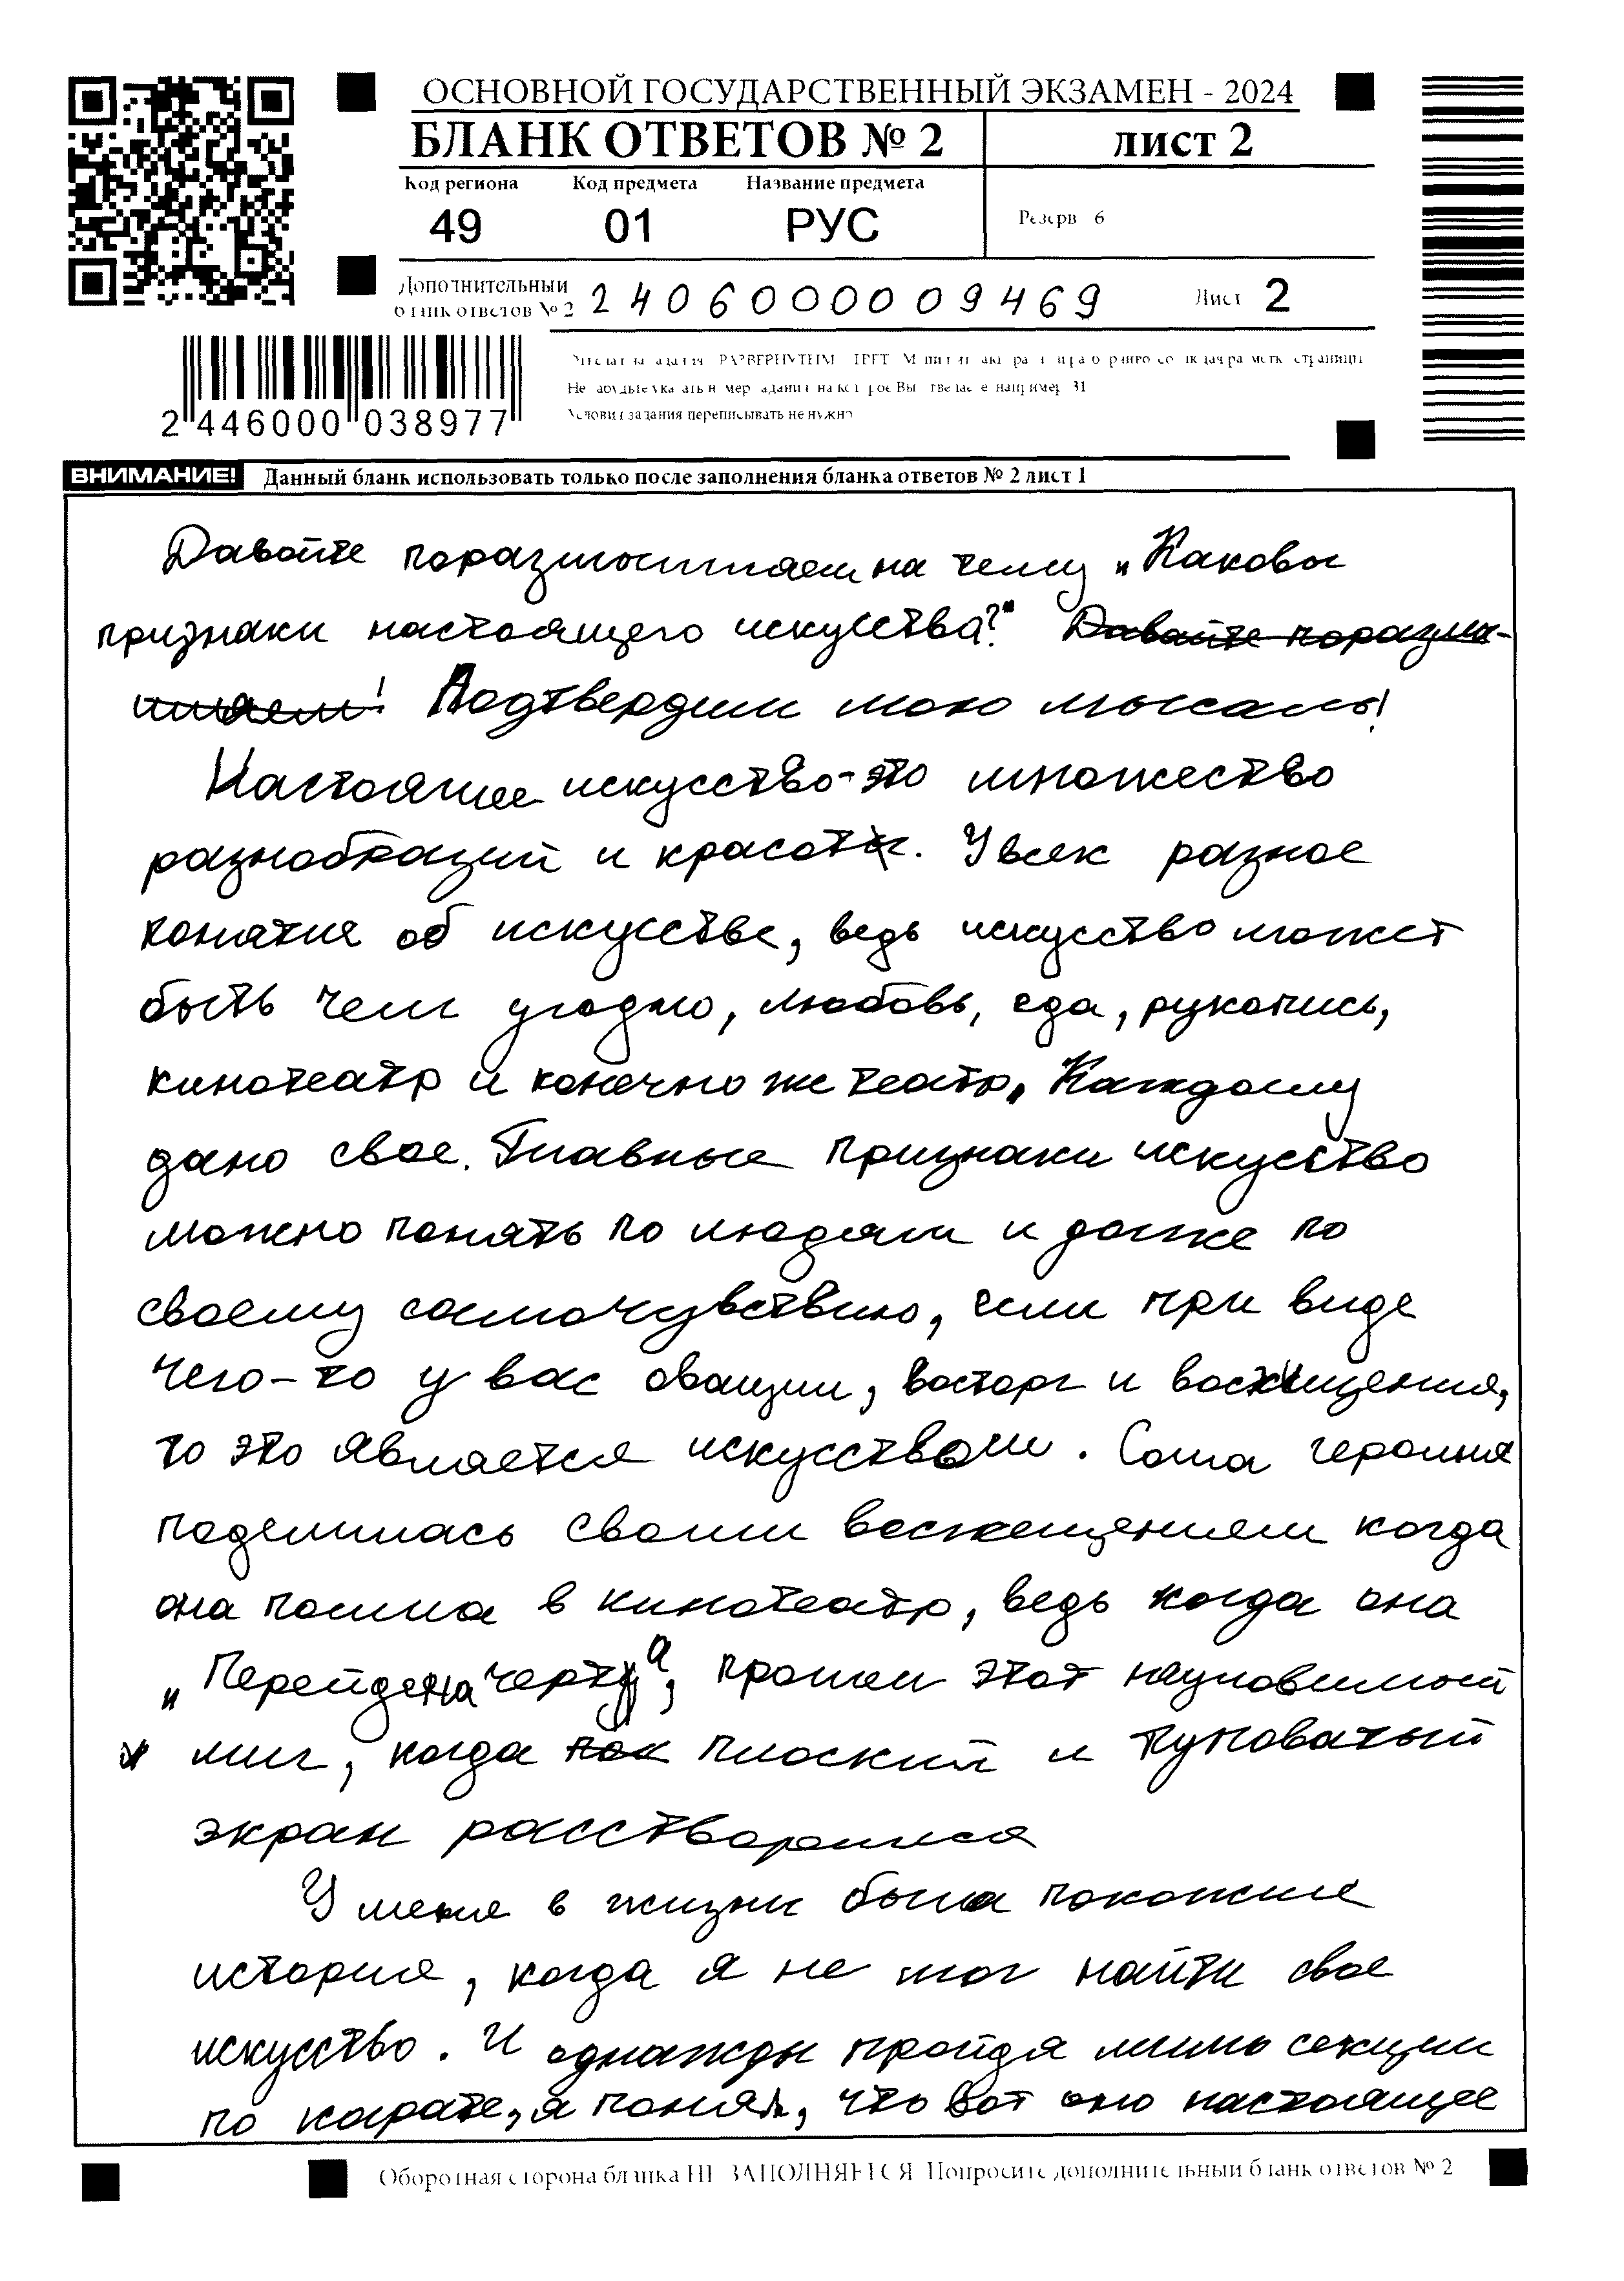 ОСНОВНОЙ ГОСУДАРСТВЕННЫЙ ЭКЗАМЕН - 2024
БЛАНК ОТВЕТОВ № 2
лист 2
Код региона
Код предмета
Название предмета
49
01
РУС
Резерв 6
Дополнительный
бланк ответов № 2
2406000009469
Лист 2
2 446000 038977
Условия задания переписывать не нужно
ВНИМАНИЕ! Данный бланк использовать только после заполнения бланка ответов № 2 лист 1
Давайте поразмышляем на тему „Каковы
признаки настоящего искуства?" Давайте поразмы-
шляем! Подтвердим мою мысль!
Настоящее искусство-это множество
разнобразий и красоты. У всех разное
понятие об искусстве, ведь искусство может
быть чем угодно, любовь, еда, рукопись,
кинотеатр и конечно же театр. Каждому
дано свое. Главные признаки искусство
можно понять по людям и даже по
своему самочувствию, если при виде
чего-то у вас овации, восторг и восхищения,
то это является искусством. Сама героиня
поделилась своим восхещением когда
она пошла в кинотеатр, ведь когда она
„Перейдена черта", прошел этот неуловимый
миг, когда пок плоский и туповатый
экран расстворился
У меня в жизни была похожие
история, когда я не мог найти свое
искусство. И однажды пройдя мимо секции
по карате, я понял, что вот оно настоящее
Оборотная сторона бланка НЕ ЗАПОЛНЯЕТСЯ. Попросите дополнительный бланк ответов № 2